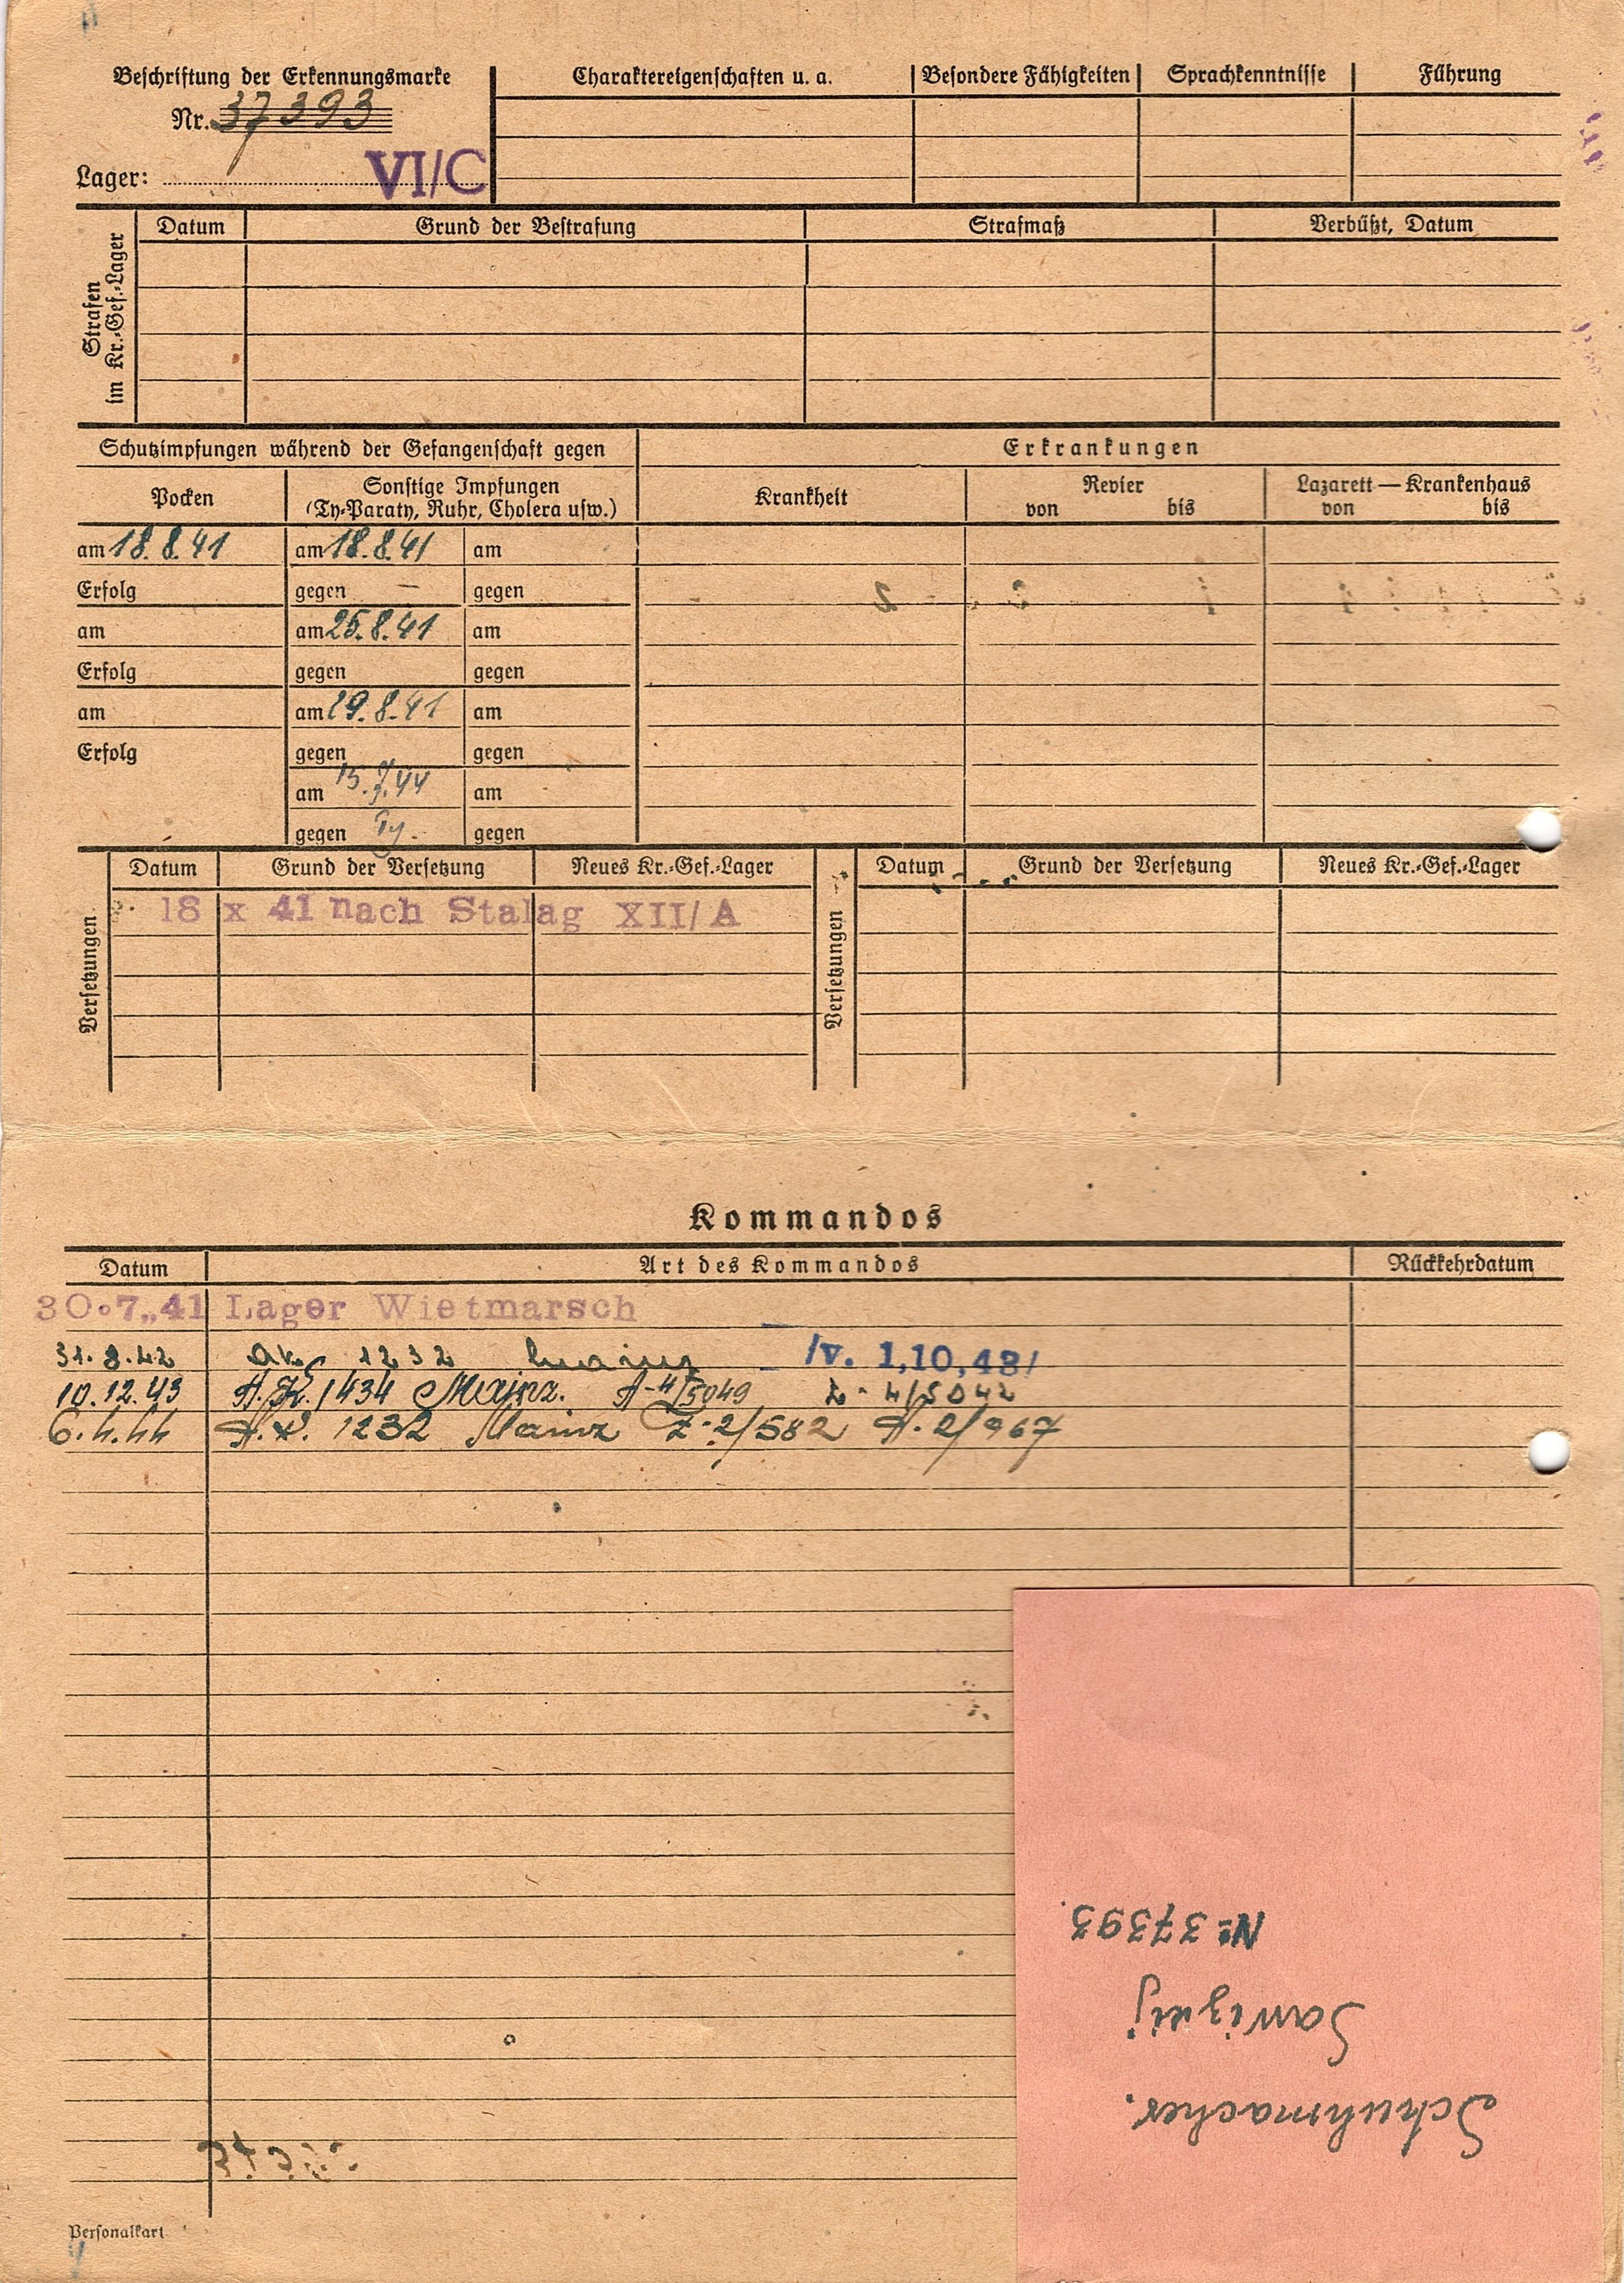 Beschriftung der Erkennungsmarke
Nr. 37393
Lager: VI/C
Charaktereigenschaften u. a. Besondere Fähigkeiten Sprachkenntnisse Führung
Strafen im Kr.-Gef.-Lager
Datum Grund der Bestrafung Strafmaß Verbüßt, Datum
Schutzimpfungen während der Gefangenschaft gegen Erkrankungen
Pocken Sonstige Impfungen (Ty-Paraty, Ruhr, Cholera usw.) Krankheit Revier von bis Lazarett — Krankenhaus von bis
am 18.8.41 am 18.8.41 am
Erfolg gegen — gegen
am am 25.8.41 am
Erfolg gegen gegen
am am 29.8.41 am
Erfolg gegen gegen
am 15.7.44 am
gegen Ty. gegen
Versetzungen Datum Grund der Versetzung Neues Kr.-Gef.-Lager Versetzungen Datum Grund der Versetzung Neues Kr.-Gef.-Lager
18 X 41 nach Stalag XII/A
Kommandos
Datum Art des Kommandos Rückkehrdatum
30.7.41 Lager Wietmarsch
31.8.42 1232 Mainz /v. 1,10,43/
10.12.43 A.K. 1434 Mainz. A-4/5049 Z-4/5042
6.4.44 A.K. 1232 Mainz Z-2/582 A.2/967
Schuhmacher.
Sawizkij
№ 37393.
Personalkart